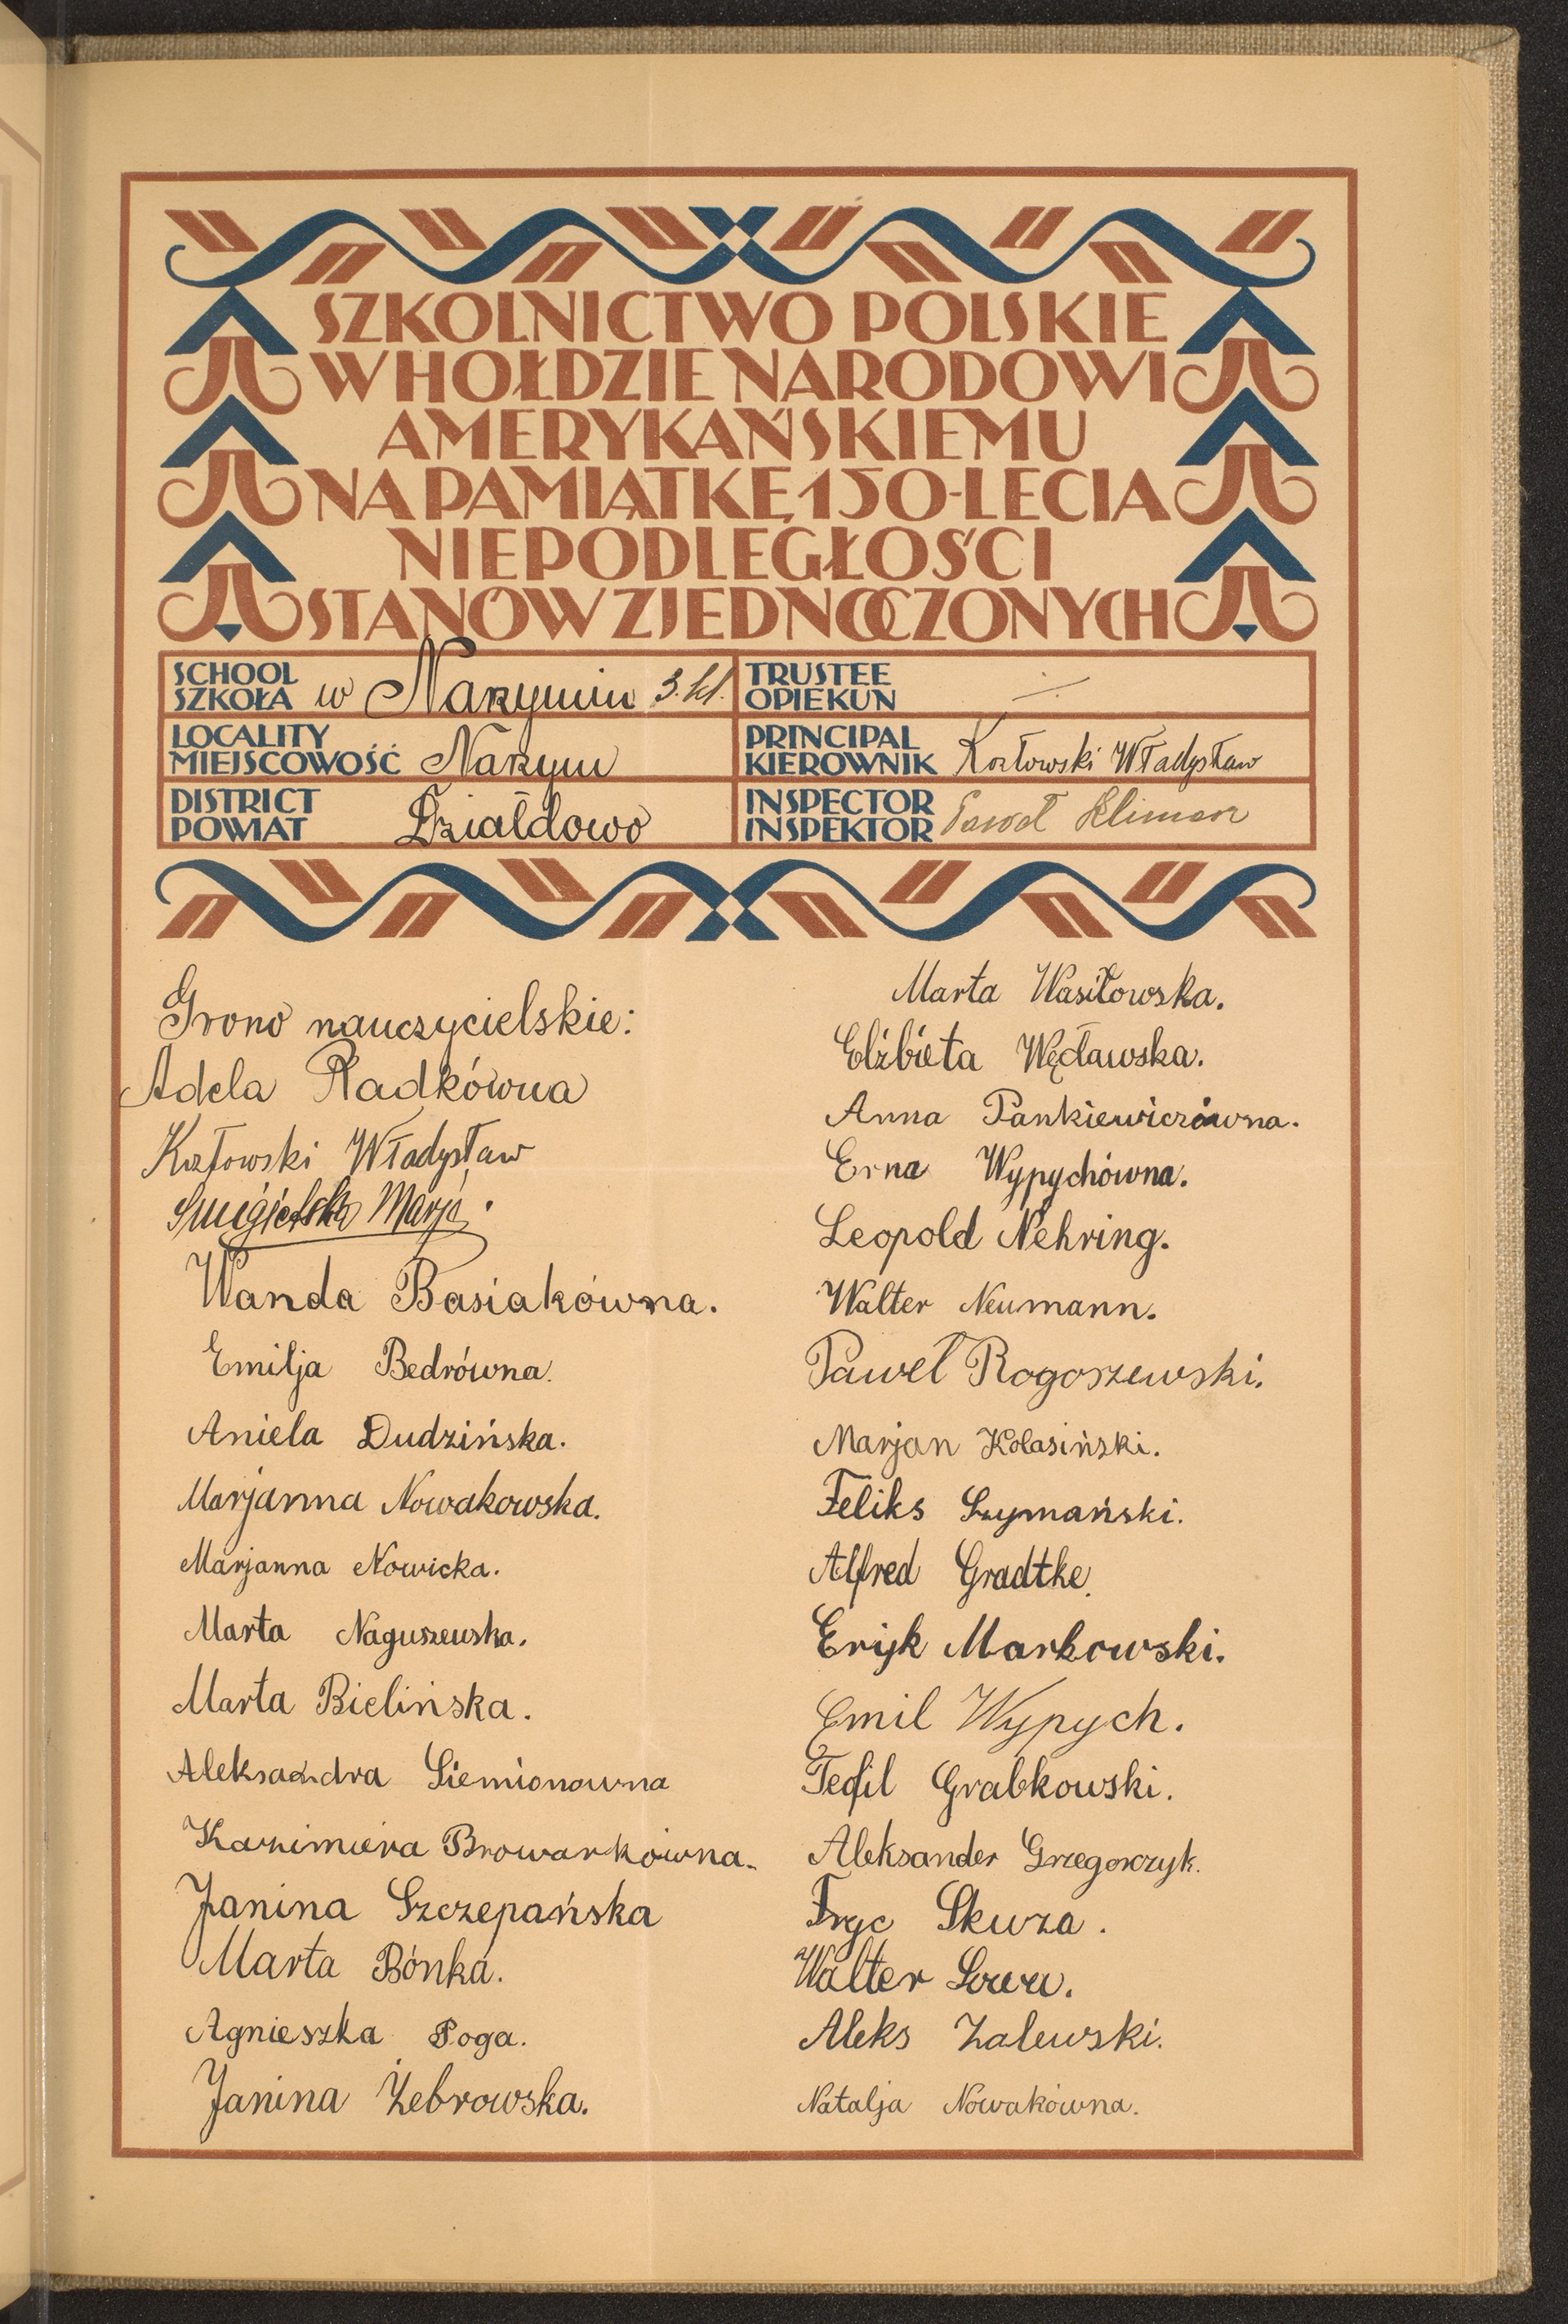 SZKOLNICTWO POLSKIE
W HOŁDZIE NARODOWI
AMERYKAŃSKIEMU
NA PAMIĄTKĘ 150-LECIA
NIEPODLEGŁOŚCI
STANÓW ZJEDNOCZONYCH
SCHOOL
SZKOŁA w Narzymiu 3. kl.
TRUSTEE
OPIEKUN
LOCALITY
MIEJSCOWOŚĆ Narzym
PRINCIPAL
KIEROWNIK Kozłowski Władysław
DISTRICT
POWIAT Działdowo
INSPECTOR
INSPEKTOR Paweł
Grono nauczycielskie:
Adela Radkówna
Kozłowski Władysław
Śmigielska Marja
Wanda Basiakówna.
Emilja Bedrówna.
Aniela Dudzińska.
Marjanna Nowakowska.
Marjanna Nowicka.
Marta Naguszewska.
Marta Bielińska.
Aleksandra Siemionowna
Kazimiera Browarkówna.
Janina Szczepańska
Marta Bónka.
Agnieszka Poga.
Janina Żebrowska.
Marta Wasiłowska.
Elżbieta Węcławska.
Anna Pankiewiczówna.
Erna Wypychówna.
Leopold Nehring.
Walter Neumann.
Paweł Rogoszewski.
Marjan Kolasiński.
Feliks Szymański.
Alfred Gradtke.
Eryk Markowski.
Emil Wypych.
Teofil Grabkowski.
Aleksander Grzegorczyk.
Fryc Skuza.
Walter
Aleks Zalewski.
Natalja Nowakówna.